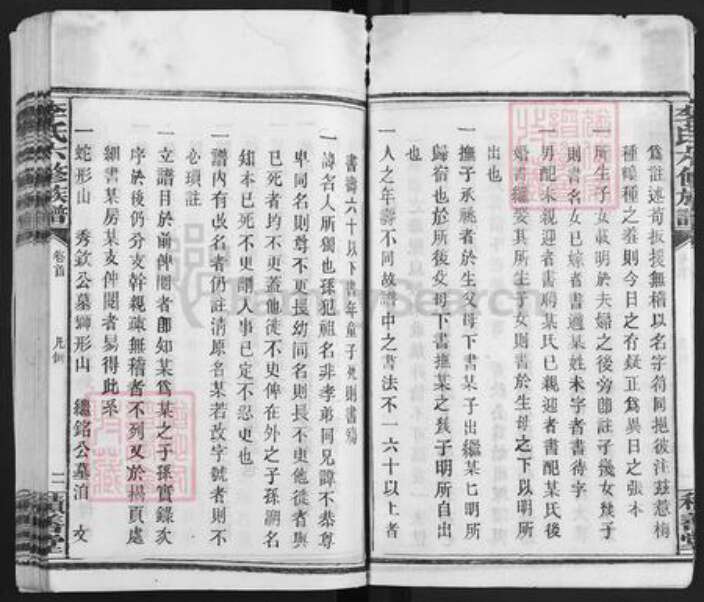 為註述苟扳援無稽以名字符同挹彼注茲惹梅
種嫁種之羞則今日之存疑正為異日之張本
一所生子女載明於夫婦之後旁卽註子幾女幾子
則書名女已嫁者書適某姓未字者書待字
一男配未親迎者書聘某氏已親迎者書配某氏後
婚書繼娶其所生子女則書於生母之下以明所
出也
一撫子承祧者於生父母下書某子出繼某匕明所
歸宿也於所後父母下書撫某之幾子明所自出
也
一人之年壽不同故譜中之書法不一六十以上者
書壽六十以下書年童子死則書殤
一諱名人所獨也孫犯祖名非孝弟同兄諱不恭尊
卑同名則尊不更長幼同名則長不更他徙者與
已死者均不更蓋他徙不更俾在外之子孫溯名
知本已死不更謂人事已定不忍更也
一譜內有改名者仍註清原名某若改字號者則不
必瑣註
一立譜目於前俾閱者卽知某為某之子孫實錄次
序於後仍分支幹親疎無稽者不列又於摺頁處
細書某房某支俾閱者易得此系
一蛇形山 秀欽公墓獅形山 繼銘公墓洎 文
李氏六修族譜
卷首
凡例
二